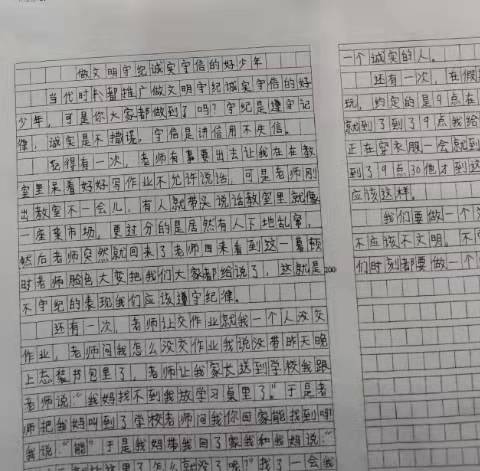 做文明守纪诚实守信的好少年
当代时代都推广做文明守纪诚实守信的好
少年，可是你大家都做到了吗？守纪是遵守记
律，诚实是不撒谎，守信是讲信用不失信。
记得有一次，老师有事要出去让我在在教
室里呆着好好写作业不允许说话，可是老师刚
出教室不一会儿，有人就带头说话教室里就像
一座菜市场，更过分的是居然有人下地乱窜，
然后老师突然就回来了老师回来看到这一幕顿
时老师脸色大变把我们大家都给说了，这就是
200
不守纪的表现我们应该遵守纪律。
还有一次，老师让交作业就我一个人没交
作业，老师问我怎么没交作业我说没带昨天晚
上忘装书包里了，老师让我家长送到学校我跟
老师说："我妈找不到我放学习桌里了。"于是老
师把我妈叫到了学校老师问我你回家能找到吗
我说："能"于是我妈带我回了家我和我妈说："
这里了怎么就没了呢？"找了一会我
一个诚实的人。
还有一次，在假
玩，约定的是9点在
就到了到了9点我给
正在穿衣服一会就到
到了9点30他才到这
应该这样。
我们要做一个
不应该不文明，不
们时刻都要做一个